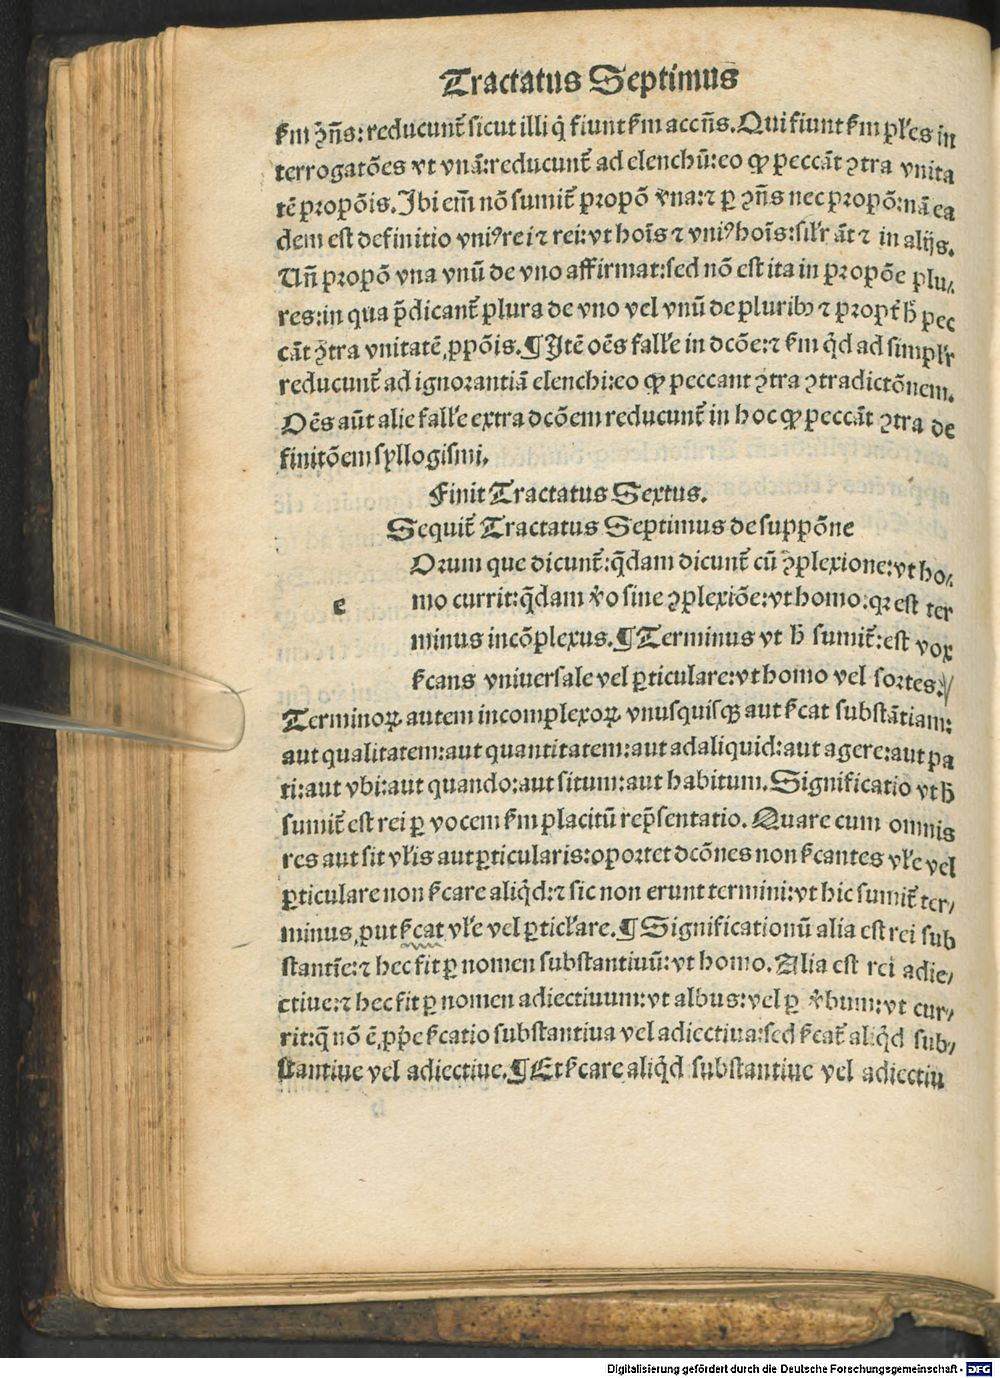 Tractatus Septimus
ẜm ꝯñs: reducunt̃ sicut illi q̇ fiunt ẜm accñs. Qui fiunt ẜm pl̃es in
terrogatões vt vnã: reducunt̃ ad elenchũ: eo ꝙ peccãt ꝯtra vnita
tẽ propõis. Ibi em̃ nõ sumit̃ propõ vna: ⁊ ꝑ ꝯñs nec propõ: nã ea
dem est definitio vniꝰ rei ⁊ rei: vt hoĩs ⁊ vniꝰ hoĩs: sil̃r ãt ⁊ in alijs.
Uñ propõ vna vnũ de vno affirmat: sed nõ est ita in propõe plu⸗
res: in qua p̃dicant̃ plura de vno vel vnũ de pluribꝰ ⁊ propt̃ h̃ pec
cãt ꝯtra vnitatẽ ꝓpõis. ¶ Itẽ oẽs fall̃e in dcõe: ⁊ ẜm q̇d ad simpl̃r
reducunt̃ ad ignorantiã elenchi: eo ꝙ peccant ꝯtra ꝯtradictõnem.
Oẽs aũt alie fall̃e extra dcõem reducunt̃ in hoc ꝙ peccãt ꝯtra de
finitõem syllogismi.
Finit Tractatus Sextus.
Sequit̃ Tractatus Septimus de suppõne
e
Orum que dicunt̃: q̃dam dicunt̃ cũ ꝯplexione: vt ho⸗
mo currit: q̃dam v̾o sine ꝯplexiõe: vt homo: qꝛ est ter
minus incõplexus. ¶ Terminus vt h̃ sumit̃: est vox
ẜcans vniuersale vel ꝑticulare: vt homo vel sortes.
Terminoꝝ autem incomplexoꝝ vnusquisqꝫ aut ẜcat substãtiam:
aut qualitatem: aut quantitatem: aut ad aliquid: aut agere: aut pa
ti: aut vbi: aut quando: aut situm: aut habitum. Significatio vt h̃
sumit̃ est rei ꝑ vocem ẜm placitũ rep̃sentatio. Quare cum omnis
res aut sit vl̃is aut ꝑticularis: oportet dcõnes non ẜcantes vl̃e vel
ꝑticulare non ẜcare aliq̇d: ⁊ sic non erunt termini: vt hic sumit̃ ter⸗
minus, ꝓut ẜcat vl̃e vel ꝑticl̃are. ¶ Significationũ alia est rei sub
stantiẽ: ⁊ hec fit ꝑ nomen substantiuũ: vt homo. Alia est rei adie⸗
ctiue: ⁊ hec fit ꝑ nomen adiectiuum: vt albus: vel ꝑ v̾bum: vt cur⸗
rit: q̃ nõ ẽ ꝓp̃e ẜcatio substantiua vel adiectiua: sed ẜcat̃ aliq̇d sub⸗
stantiue vel adiectiue. ¶ Et ẜcare aliq̇d substantiue vel adiectiu
Digitalisierung gefördert durch die Deutsche Forschungsgemeinschaft - DFG